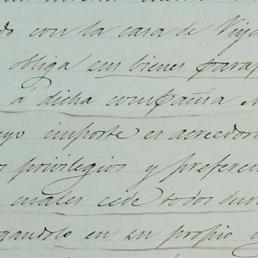 do con la casa de Viya
obliga sus bienes para p
á dicha compañia
uyo importe es acreedora
os privilegios y preferen
cuales cede todos
gandolo en su propio